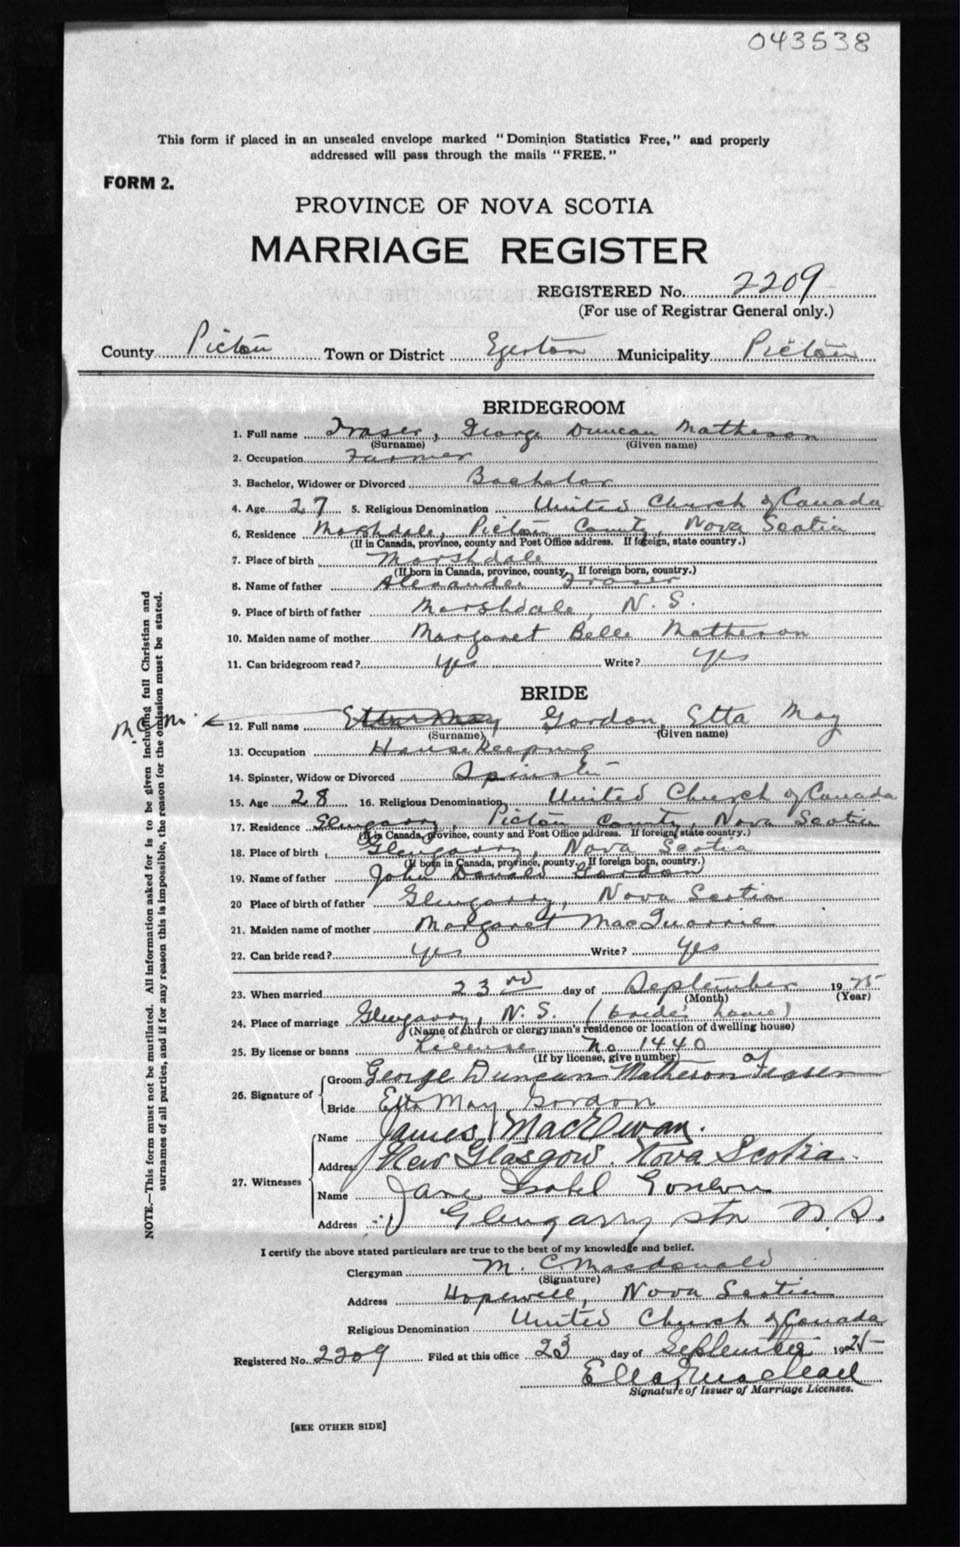 043538
This form if placed in an unsealed envelope marked "Dominion Statistics Free," and properly
addressed will pass through the mails "FREE."
FORM 2.
PROVINCE OF NOVA SCOTIA
MARRIAGE REGISTER
REGISTERED No. 2209
(For use of Registrar General only.)
County Pictou Town or District Egerton Municipality Pictou
BRIDEGROOM
1. Full name Fraser, George Duncan Matheson
(Surname) (Given name)
2. Occupation Farmer
3. Bachelor, Widower or Divorced Bachelor
4. Age 27 5. Religious Denomination United Church of Canada
6. Residence Marshdale, Pictou County, Nova Scotia
(If in Canada, province, county and Post Office address. If foreign, state country.)
7. Place of birth Marshdale
(If born in Canada, province, county, If foreign born, country.)
8. Name of father Alexander Fraser
9. Place of birth of father Marshdale, N. S.
10. Maiden name of mother Margaret Belle Matheson
11. Can bridegroom read? Yes Write? Yes
BRIDE
M.C.M.
12. Full name Etta May Gordon, Etta May
(Surname) (Given name)
13. Occupation Housekeeping
14. Spinster, Widow or Divorced Spinster
15. Age 28 16. Religious Denomination United Church of Canada
17. Residence Glengarry, Pictou County, Nova Scotia
(If in Canada, province, county and Post Office address. If foreign, state country.)
18. Place of birth Glengarry, Nova Scotia
(If born in Canada, province, county, If foreign born, country.)
19. Name of father John Donald Gordon
20 Place of birth of father Glengarry, Nova Scotia
21. Maiden name of mother Margaret MacQuarrie
22. Can bride read? Yes Write? Yes
23. When married 23rd day of September 1925
(Month) (Year)
24. Place of marriage Glengarry, N. S. (bride's home)
(Name of church or clergyman's residence or location of dwelling house)
25. By license or banns License No 1440
(If by license, give number)
26. Signature of Groom George Duncan Matheson Fraser
Bride Etta May Gordon
27. Witnesses Name James MacEwan.
Address New Glasgow. Nova Scotia.
Name Jane Isobel Gordon
Address Glengarry stn N. S.
I certify the above stated particulars are true to the best of my knowledge and belief.
Clergyman M. C. Macdonald
(Signature)
Address Hopewell, Nova Scotia
Religious Denomination United Church of Canada
Registered No. 2209 Filed at this office 23 day of September 1925
Signature of Issuer of Marriage Licenses.
[SEE OTHER SIDE]
NOTE.—This form must not be mutilated. All information asked for is to be given including full Christian and
surnames of all parties, and if for any reason this is impossible, the reason for the omission must be stated.